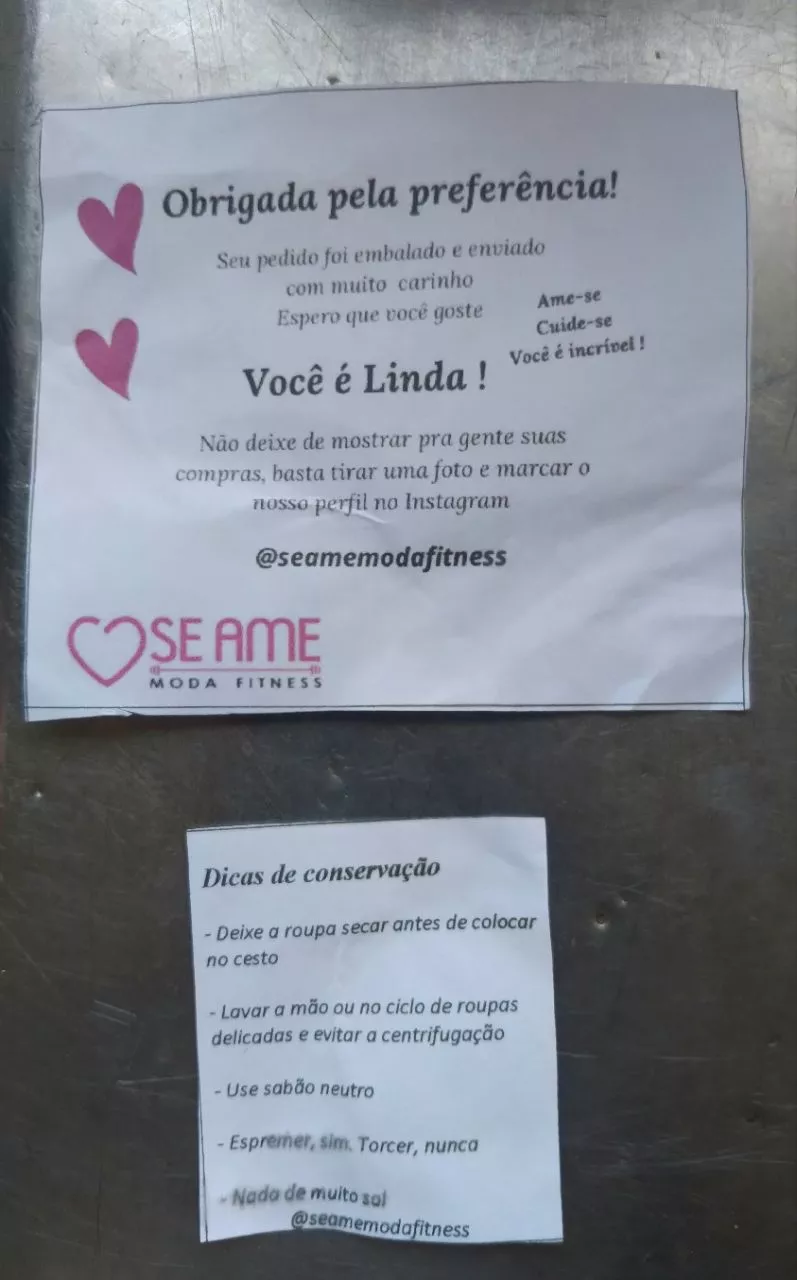 Obrigada pela preferência!
Seu pedido foi embalado e enviado
com muito carinho
Espero que você goste
Ame-se
Cuide-se
Você é incrível !
Você é Linda !
Não deixe de mostrar pra gente suas
compras, basta tirar uma foto e marcar o
nosso perfil no Instagram
@seamemodafitness
SE AME
MODA FITNESS
Dicas de conservação
- Deixe a roupa secar antes de colocar
no cesto
- Lavar a mão ou no ciclo de roupas
delicadas e evitar a centrifugação
- Use sabão neutro
- Espremer, sim. Torcer, nunca
- Nada de muito sol
@seamemodafitness